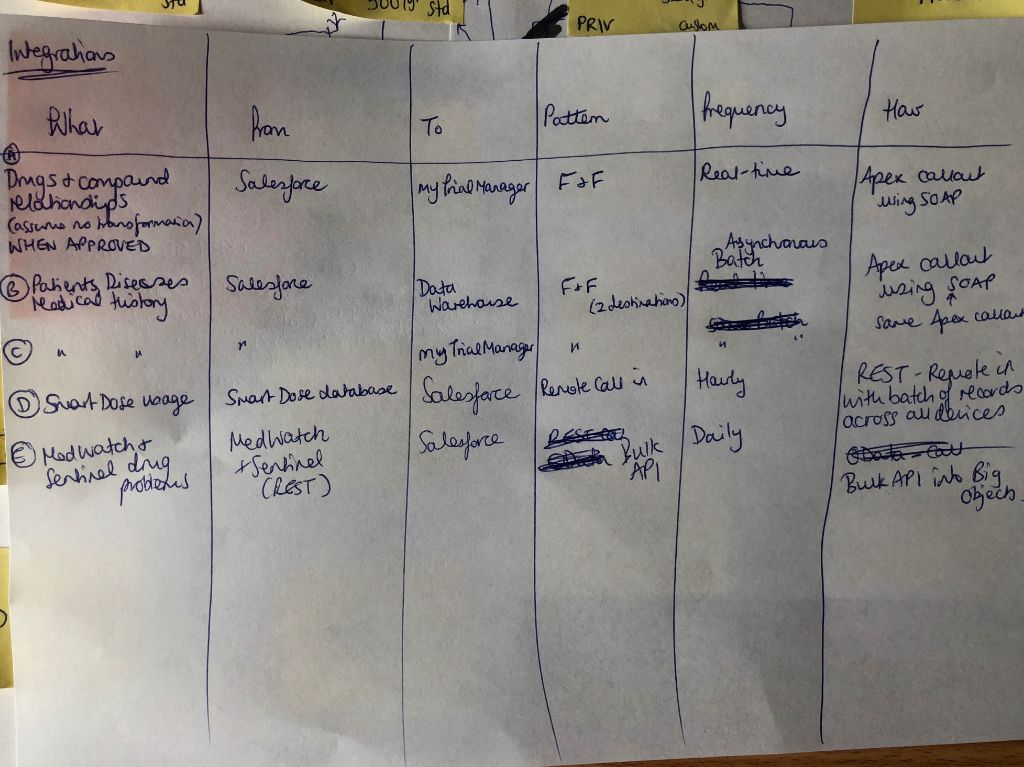 std
500rg.
std
PRIV
custom
Integrations
What
From
To
Pattern
Frequency
How
A
Drugs & compound
relationships
(assume no transformation)
WHEN APPROVED
Salesforce
myTrialManager
F & F
Real-time
Apex callout
using SOAP
B
Patients, Diseases
Medical History
Salesforce
Data
Warehouse
F & F
(2 destinations)
Asynchronous
Batch
Apex callout
using SOAP
same Apex callout
C
" "
"
myTrialManager
"
" "
D
Smart Dose usage
Smart Dose database
Salesforce
Remote Call in
Hourly
REST - Remote in
with batch of records
across all devices
E
MedWatch &
Sentinel drug
problems
MedWatch
+ Sentinel
(REST)
Salesforce
Bulk
API
Daily
OData - Call
Bulk API into Big
Objects.